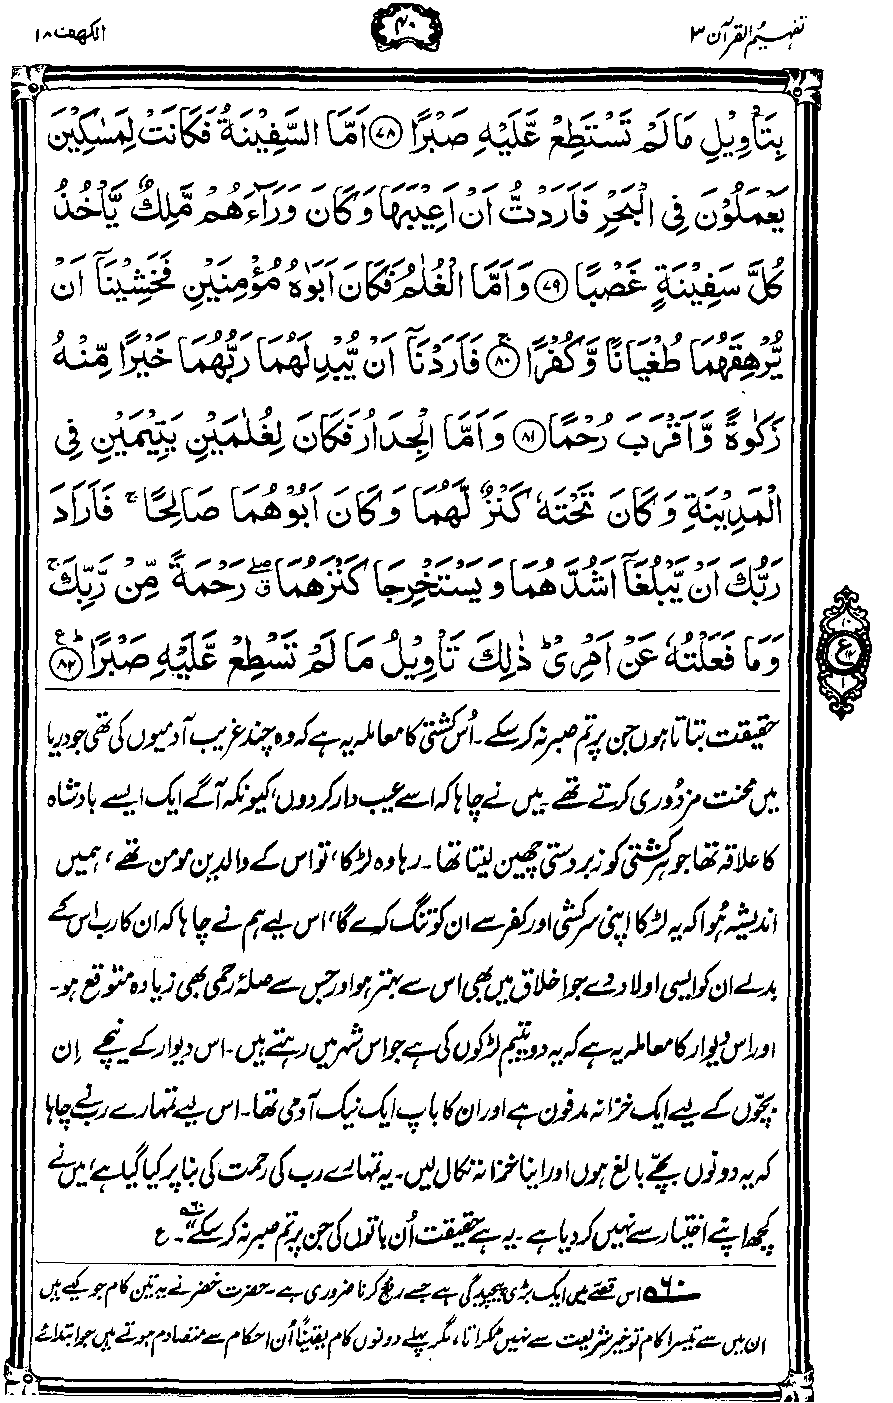 تفہیم القرآن ۳
۴۰
الکھف ۱۸
بِتَاْوِيْلِ مَا لَمْ تَسْتَطِعْ عَّلَيْهِ صَبْرًا ﴿۷۸﴾ اَمَّا السَّفِيْنَةُ فَكَانَتْ لِمَسٰكِيْنَ
يَعْمَلُوْنَ فِى الْبَحْرِ فَاَرَدْتُّ اَنْ اَعِيْبَهَا وَكَانَ وَرَآءَهُمْ مَّلِكٌ يَّاْخُذُ
كُلَّ سَفِيْنَةٍ غَصْبًا ﴿۷۹﴾ وَاَمَّا الْغُلٰمُ فَكَانَ اَبَوٰهُ مُؤْمِنَيْنِ فَخَشِيْنَآ اَنْ
يُّرْهِقَهُمَا طُغْيَانًا وَّكُفْرًا ۚ﴿۸۰﴾ فَاَرَدْنَآ اَنْ يُّبْدِلَهُمَا رَبُّهُمَا خَيْرًا مِّنْهُ
زَكٰوةً وَّاَقْرَبَ رُحْمًا ﴿۸۱﴾ وَاَمَّا الْجِدَارُ فَكَانَ لِغُلٰمَيْنِ يَتِيْمَيْنِ فِى
الْمَدِيْنَةِ وَكَانَ تَحْتَهٗ كَنْزٌ لَّهُمَا وَكَانَ اَبُوْهُمَا صَالِحًا ۚ فَاَرَادَ
رَبُّكَ اَنْ يَّبْلُغَآ اَشُدَّهُمَا وَيَسْتَخْرِجَا كَنْزَهُمَا ۖ رَحْمَةً مِّنْ رَّبِّكَ ۚ
وَمَا فَعَلْتُهٗ عَنْ اَمْرِىْ ؕ ذٰلِكَ تَاْوِيْلُ مَا لَمْ تَسْطِعْ عَّلَيْهِ صَبْرًا ؕ﴿۸۲﴾ ع
۱۰
ع
۱
حقیقت بتاتا ہوں جن پر تم صبر نہ کر سکے۔ اُس کشتی کا معاملہ یہ ہے کہ وہ چند غریب آدمیوں کی تھی جو دریا
میں محنت مزدوری کرتے تھے۔ میں نے چاہا کہ اسے عیب دار کر دوں، کیونکہ آگے ایک ایسے بادشاہ
کا علاقہ تھا جو ہر کشتی کو زبردستی چھین لیتا تھا۔ رہا وہ لڑکا، تو اس کے والدین مومن تھے، ہمیں
اندیشہ ہُوا کہ یہ لڑکا اپنی سرکشی اور کفر سے ان کو تنگ کرے گا، اس لیے ہم نے چاہا کہ ان کا رب اس کے
بدلے ان کو ایسی اولاد دے جو اخلاق میں بھی اس سے بہتر ہو اور جس سے صلۂ رحمی بھی زیادہ متوقع ہو۔
اور اس دیوار کا معاملہ یہ ہے کہ یہ دو یتیم لڑکوں کی ہے جو اس شہر میں رہتے ہیں۔ اس دیوار کے نیچے اِن
بچّوں کے لیے ایک خزانہ مدفون ہے اور ان کا باپ ایک نیک آدمی تھا۔ اس لیے تمہارے رب نے چاہا
کہ یہ دونوں بچّے بالغ ہوں اور اپنا خزانہ نکال لیں۔ یہ تمہارے رب کی رحمت کی بنا پر کیا گیا ہے، میں نے
کچھ اپنے اختیار سے نہیں کر دیا ہے۔ یہ ہے حقیقت اُن باتوں کی جن پر تم صبر نہ کر سکے ۶۰"۔ ع
۶۰ اس قصّے میں ایک بڑی پیچیدگی ہے جسے رفع کرنا ضروری ہے۔ حضرت خضر نے یہ تین کام جو کیے ہیں
ان میں سے تیسرا کام تو خیر شریعت سے نہیں ٹکراتا، مگر پہلے دونوں کام یقیناً اُن احکام سے متصادم ہوتے ہیں جو ابتدائے